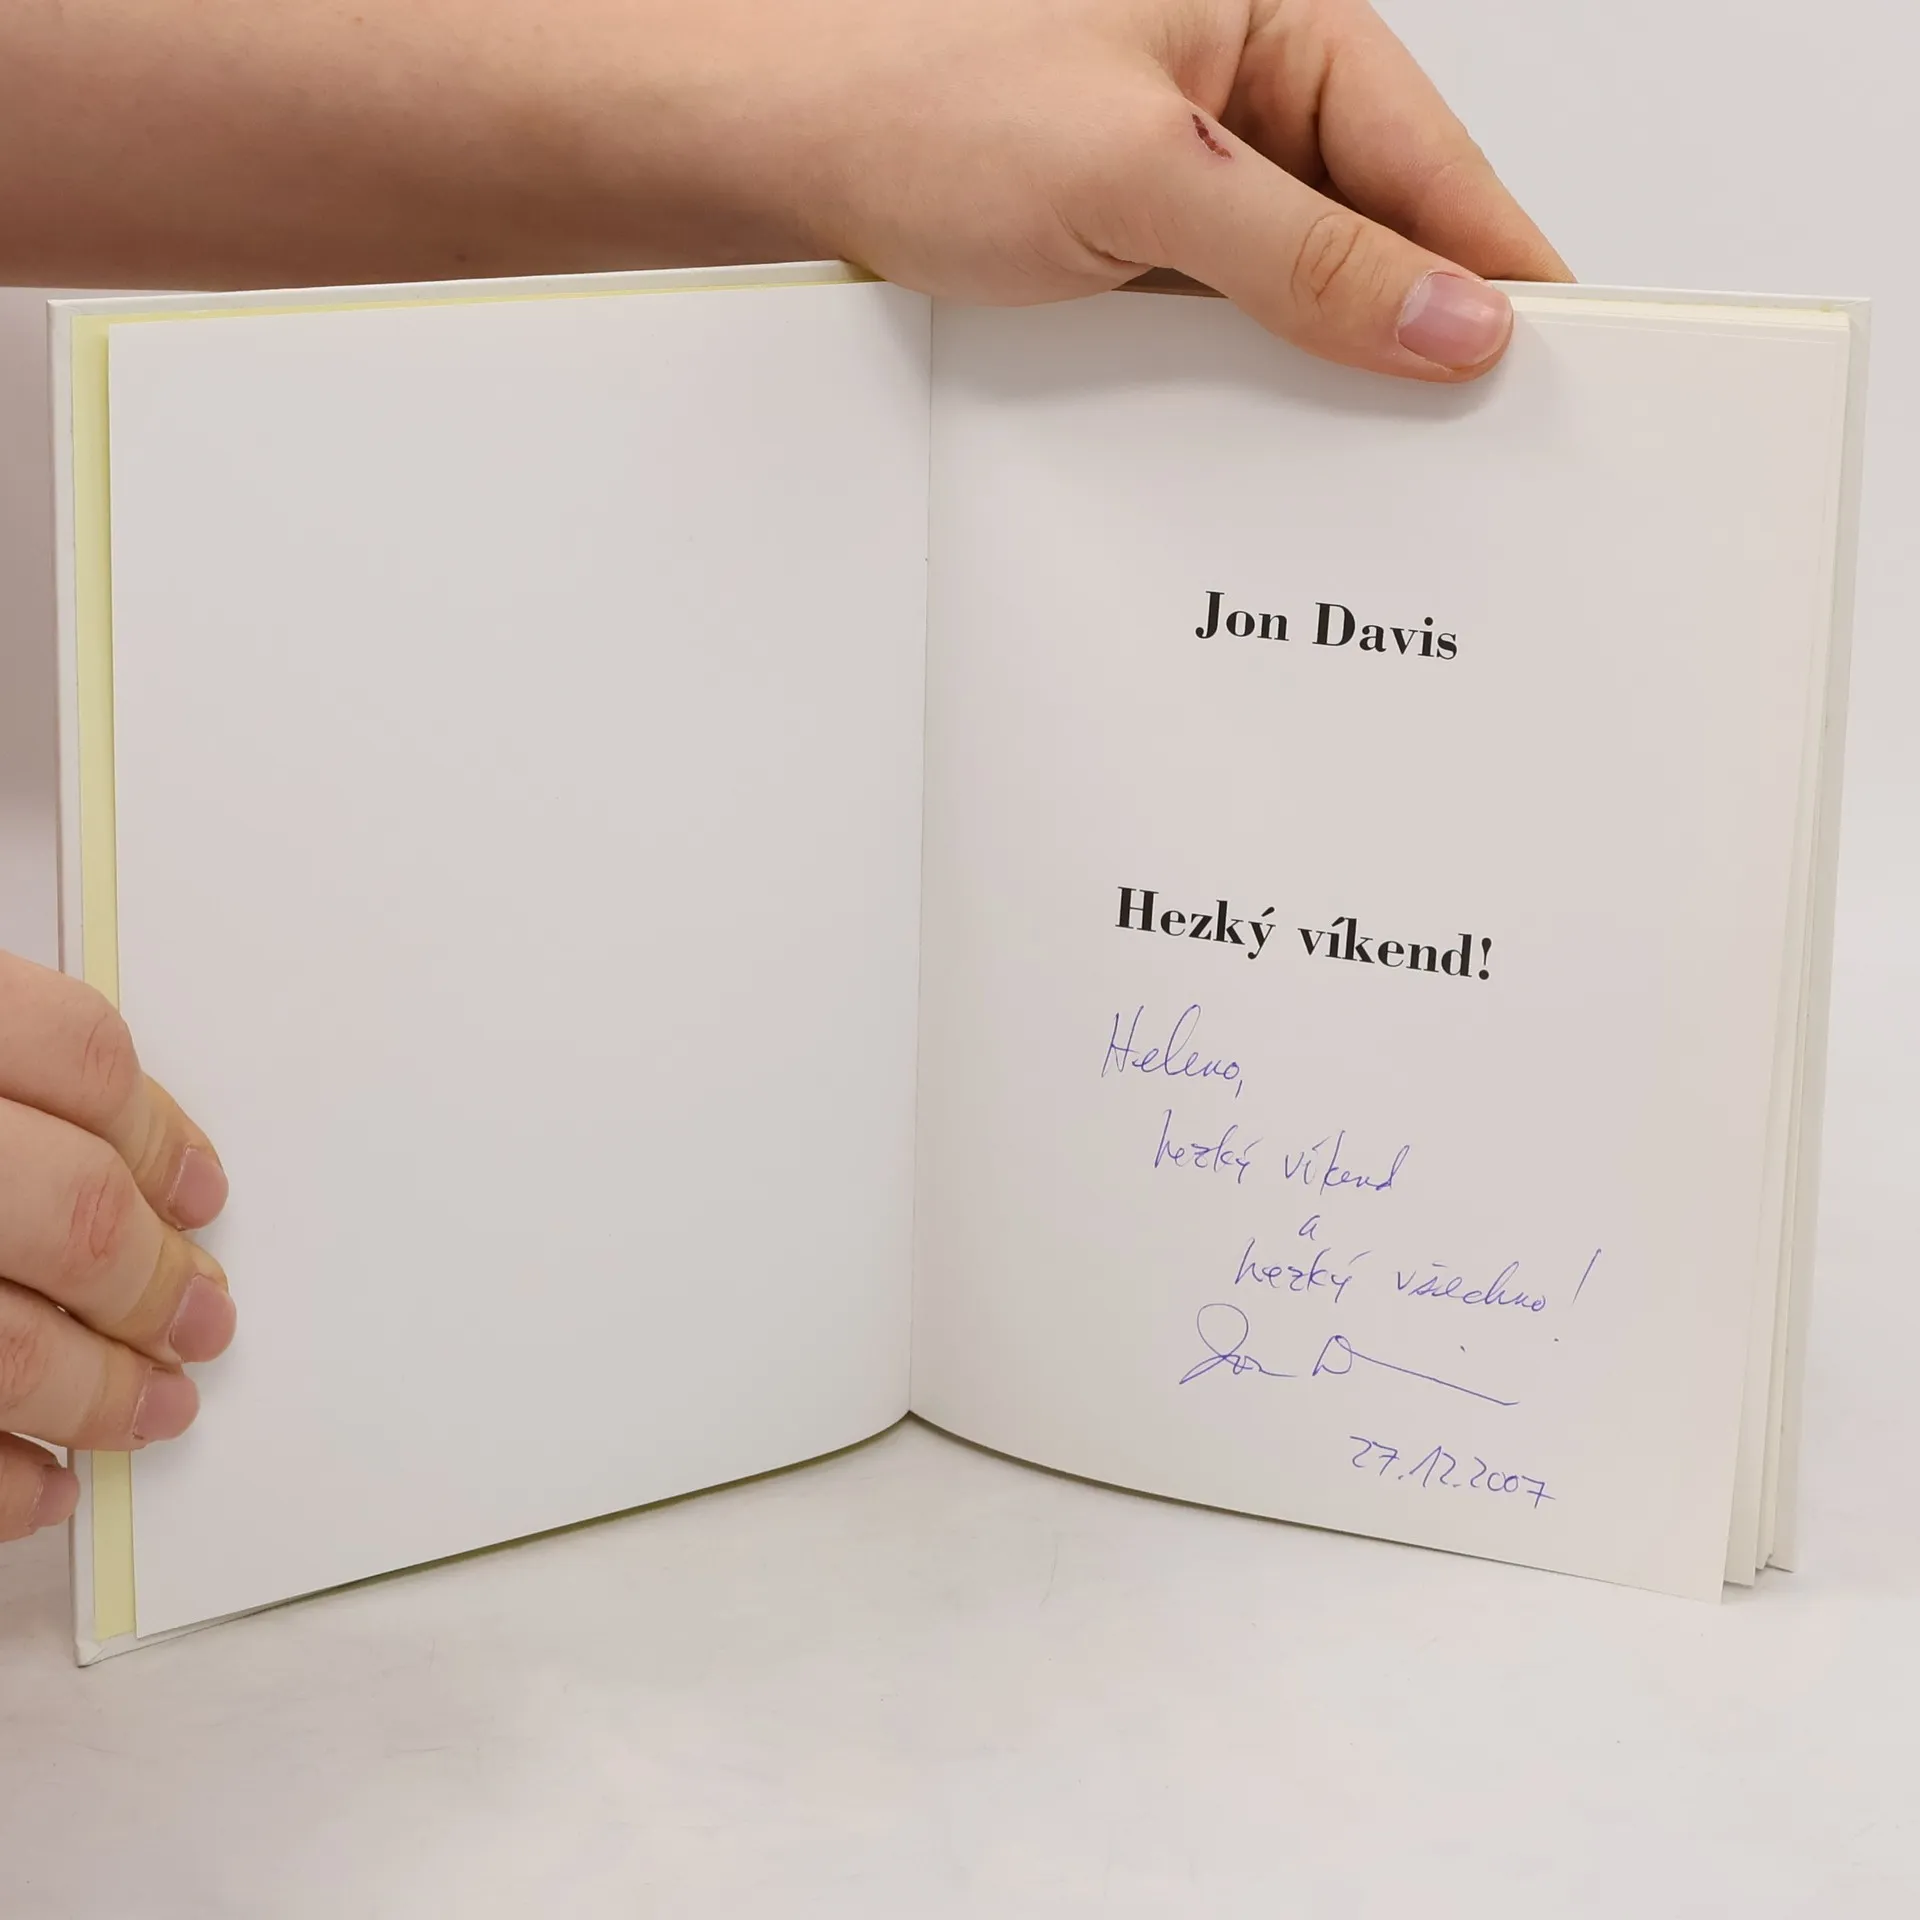 Jon Davis
Hezký víkend!
Heleno,
hezký víkend
a
hezký všechno!
Jon D
27.12.2007